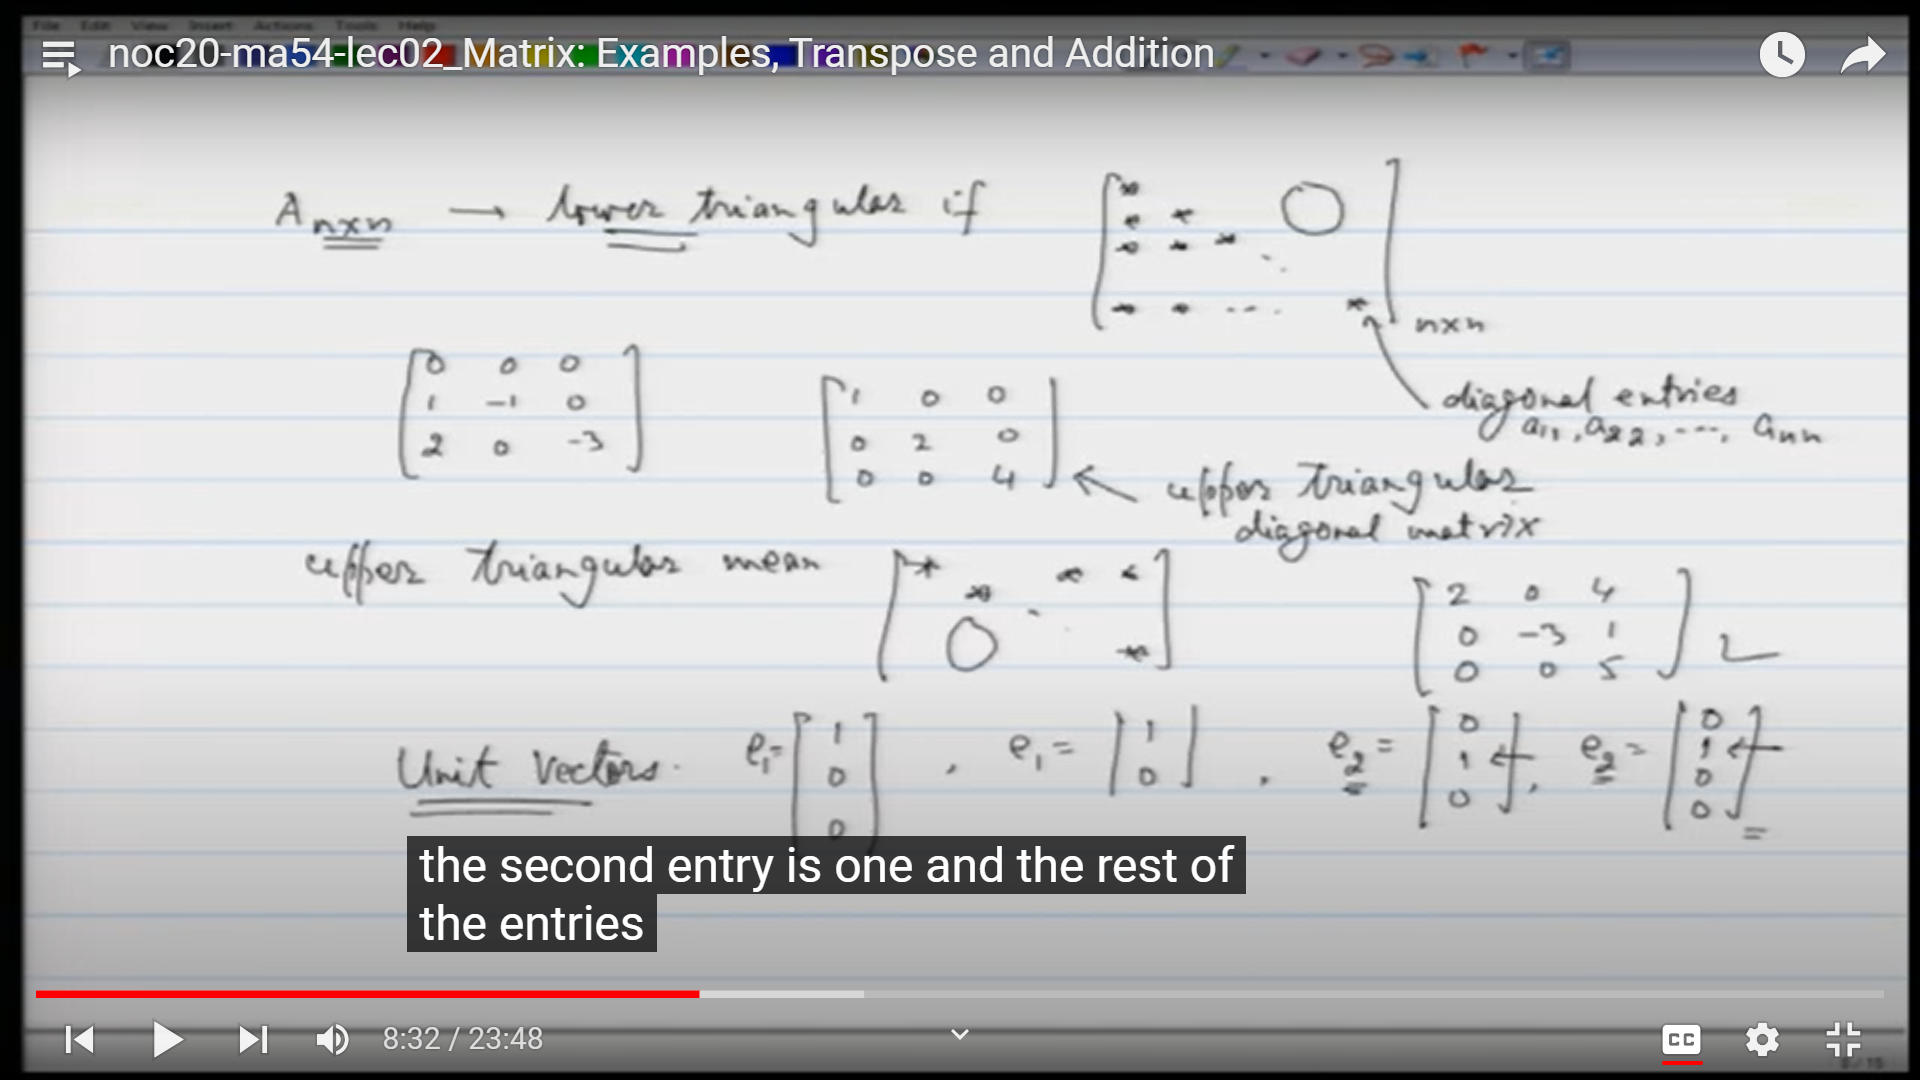 File Edit View Insert Actions Tools Help
noc20-ma54-lec02_Matrix: Examples, Transpose and Addition
A n×n → lower triangular if [ * O ] n×n
* *
* * *
* * ... *
diagonal entries
a11, a22, ..., ann
[ 0 0 0 ]
[ 1 -1 0 ]
[ 2 0 -3 ]
[ 1 0 0 ]
[ 0 2 0 ]
[ 0 0 4 ] ← upper triangular
diagonal matrix
upper triangular mean [ * * * ]
* ...
O *
[ 2 0 4 ]
[ 0 -3 1 ]
[ 0 0 5 ]
Unit Vectors. e1= [ 1 0 0 ], e1 = [ 1 0 ], e2 = [ 0 1 0 ], e2 = [ 0 1 0 0 ]
the second entry is one and the rest of
the entries
8:32 / 23:48
CC